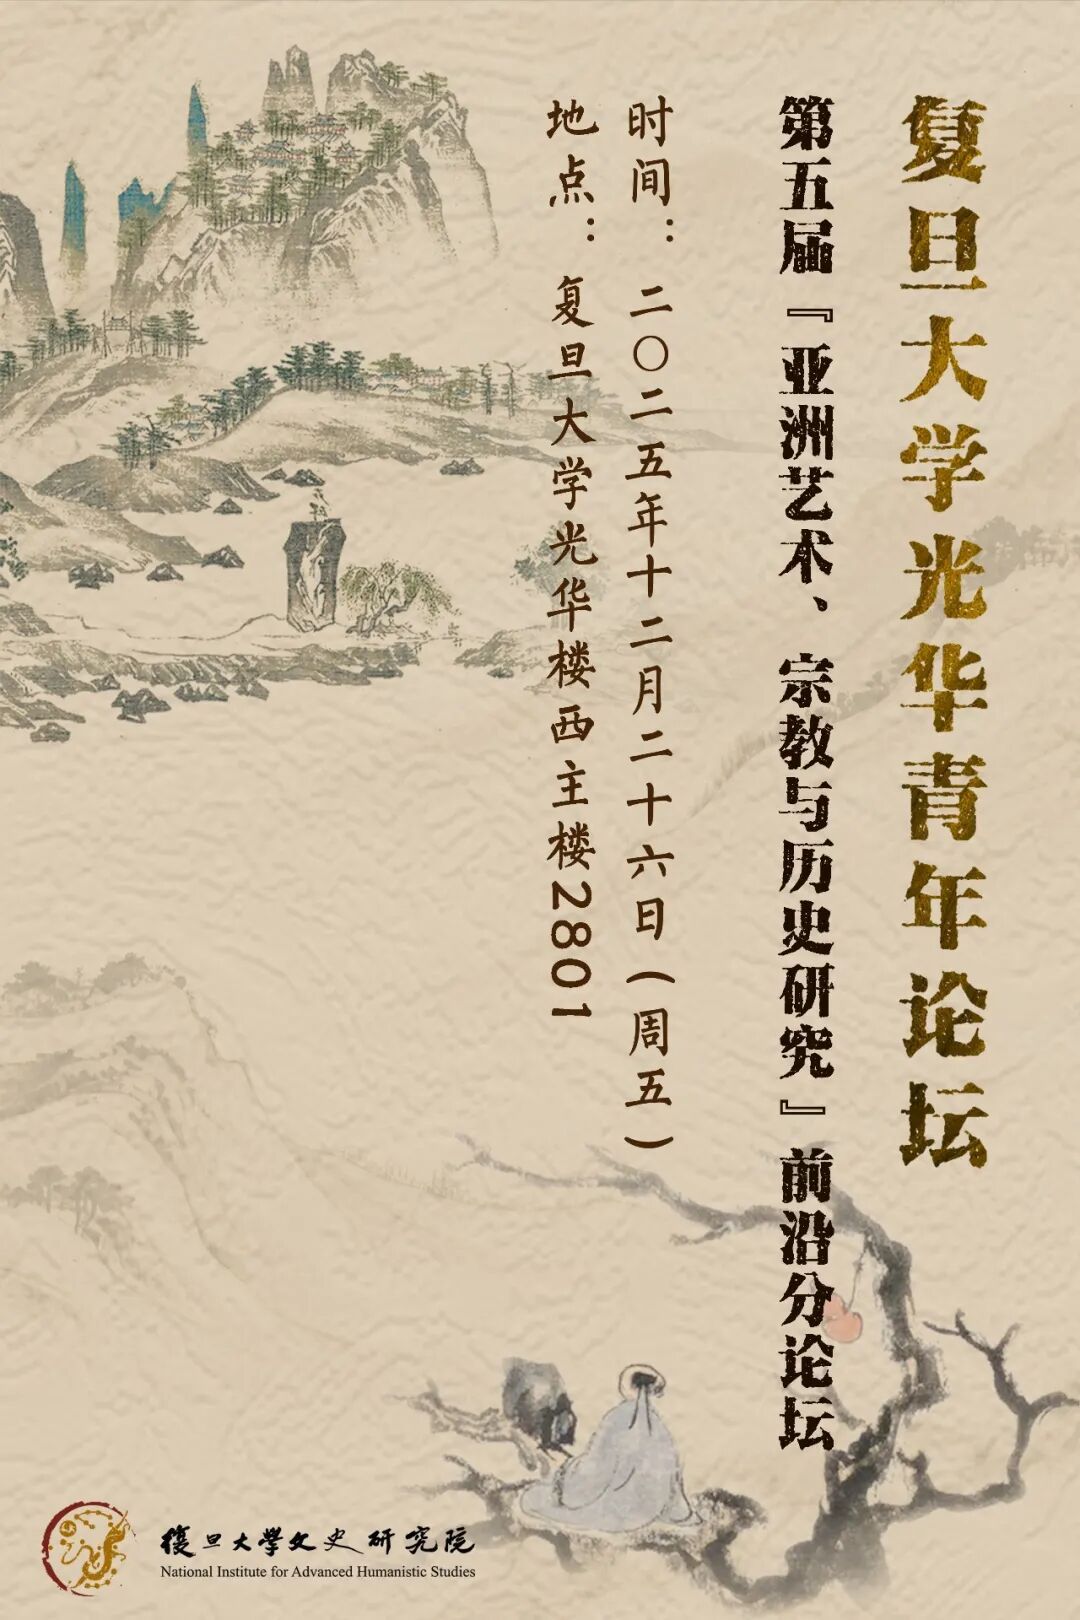 复旦大学光华青年论坛
第五届『亚洲艺术、宗教与历史研究』前沿分论坛
时间：二〇二五年十二月二十六日（周五）
地点：复旦大学光华楼西主楼2801
復旦大學文史研究院
National Institute for Advanced Humanistic Studies